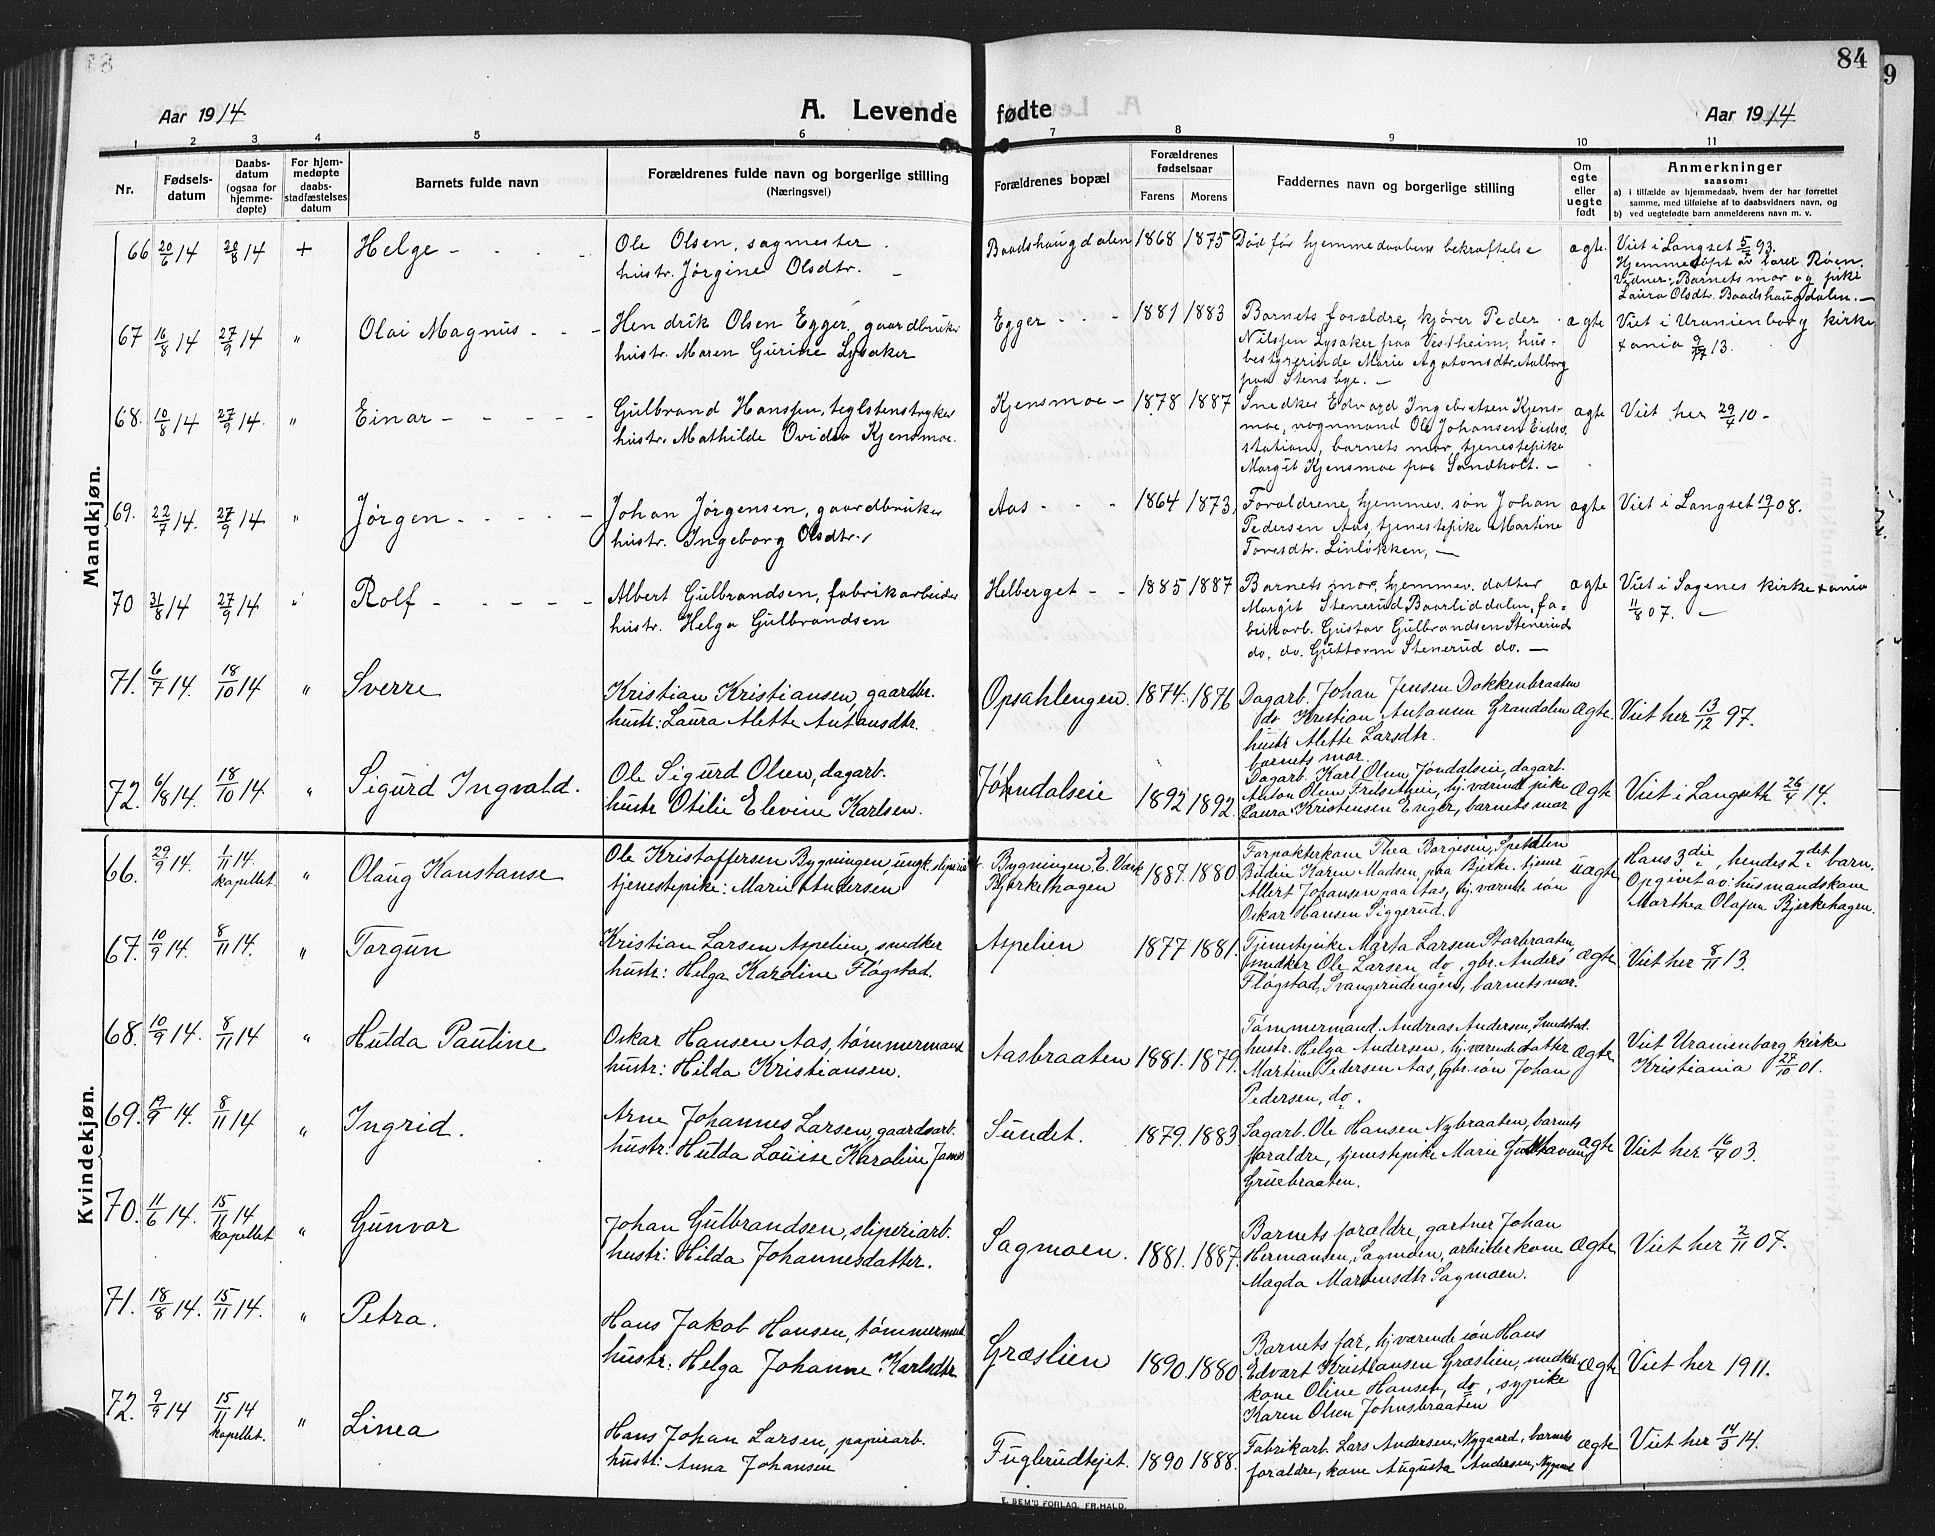 84
9
Aar 1914
A. Levende fødte
Aar 1914
1 2 3 4 5 6 7 8 9 10 11
Nr.
Fødsels-
datum
Daabs-
datum
(ogsaa for
hjemme-
døpte)
For hjem-
medøpte
daabs-
stadfæstelses
datum
Barnets fulde navn
Forældrenes fulde navn og borgerlige stilling
(Næringsvei)
Forældrenes bopæl
Forældrenes
fødselsaar
Farens Morens
Faddernes navn og borgerlige stilling
Om
egte
eller
uegte
født
Anmerkninger
saasom:
a) i tilfælde av hjemmedaab, hvem der har forrettet
samme, med tilføielse af to daabsvidners navn, og
b) ved uegtefødte barn anmelderens navn m. v.
Mandkjøn.
66 20/6 14 20/8 14 + Helge - - -
Ole Olsen, sagmester
hustr. Jørgine Olsdtr. -
Baadshaugdalen 1868 1875
Død før hjemmedaabens bekræftelse
ægte
Viet i Langset 5/7 93.
Hjemmedøpt av Røen.
Vidner: Barnets mor og pike
Laura Olsdtr. Baadshaugdalen. -
67 16/8 14 27/9 14 " Olai Magnus - - -
Hendrik Olsen Egger, gaardbruker
hustr. Maren Gurine Lysaker
Egger - - - 1881 1883
Barnets forældre, kjører Peder
Nilssen Lysaker paa Vestheim, hus-
bestyrerinde Marie Agatonsdtr. Aalborg
paa Stensbye. -
ægte
Viet i Uranienborg kirke
xania 13.
68. 10/8 14 27/9 14. " Einar - - - - -
Gulbrand Hanssen, teglstenstryker
hustr. Mathilde Ovidia Kjensmoe.
Kjensmoe - 1878 1887
Snedker Edvard Ingebretsen Kjens-
moe, vognmand Ole Johansen Eidsv.
station, barnets mor, tjenestepike
Margit Kjensmoe paa Sandholt. -
ægte
Viet her 29/4 10 -
69. 22/7 14. 27/9 14 " Jørgen - - - - -
Johan Jørgensen, gaardbruker
hustr. Ingeborg Olsdtr.
Aas - - - 1864 1873,
Forældrene, hjemmev. søn Johan
Pedersen Aas, tjenestepike Martine
Toresdtr. Linløkken, -
ægte
Viet i Langset 19/7 08.
70 31/8 14 27/9 14 " Rolf - - - - -
Albert Gulbrandsen, fabrikarbeider
hustr. Helga Gulbrandsen
Helberget - - 1885 1887
Barnets mor, hjemmev. datter
Margit Stenerud Baarliddalen, fa-
brikarb. Gustav Gulbrandsen Stenerud
do, do. Guttorm Stenerud do. -
ægte
Viet i Sagenes kirke xania
11/8 07. -
71. 6/7 14. 18/10 14 " Sverre
Kristian Kristiansen, gaardbr.
hustr: Laura Alette Antonsdtr.
Opsahlengen. 1874. 1876
Dagarb. Johan Jensen Dokkenbraaten
do Kristian Antonsen Grandalen
hustr Alette Larsdtr.
barnets mor.
ægte.
Viet her 13/12 97.
72. 6/8 14. 18/10 14 " Sigurd Ingvald.
Ole Sigurd Olsen, dagarb.
hustr Otilie Elevine Karlsen.
Jøndalseie 1892 1892.
Dagarb. Karl Olsen, Jøndalseie, dagarb.
Anton Olsen Frilsetheie, hj. værende pike
Laura Kristensen Enger, barnets mor
ægte
Viet i Langseth 26/4 14.
Kvindekjøn.
66. 29/9 14. 1/11 14.
kapellet " Olaug Konstanse
Ole Kristoffersen Bygningen, ungk. sliperiarb.
tjenestepike: Marie Andersen
Bygningen E. Værk
Bjerkehagen 1887. 1880
Forpakterkone Thea Borgesen, Spetalen
Budeie Karen Madsen paa Bjerke. tjener
Albert Johansen paa Aas, hj. værende søn
Oskar Hansen Siggerud.
uægte
Hans 3die, hendes 2det barn.
Opgivet av: husmandskone
Marthea Olafsen Bjerkehagen.
67. 10/9 14. 8/11 14. " Torgun
Kristian Larsen Aspelien, smedker
hustr: Helga Karoline Fløgstad.
Aspelien 1877 1881.
Tjenestepike Marta Larsen Storbraaten,
smedker Ole Larsen, do, gbr. Anders
Fløgstad, Svangerudengen, barnets mor.
ægte
Viet her 8/11 13.
68. 10/9 14. 8/11 14 " Hulda Pauline
Oskar Hansen Aas, tømmermand
hustr: Hilda Kristiansen.
Aasbraaten 1881. 1879.
Tømmermand. Andreas Andersen, Smedstad.
hustr. Helga Andersen, hj. værende datter
Martine Pedersen Aas, gbr. søn Johan
Pedersen, do.
ægte
Viet Uranienborg kirke
Kristiania 27/10 01.
69. 17/9 14. 8/11 14 " Ingrid.
Arne Johannes Larsen, gaardsarb.
hustr: Hulda Louise Karoline
Sundet. 1879. 1883.
Sagarb. Ole Hansen Nybraaten, barnets
forældre, tjenestepike Marie Gusthavsen
Gruebraaten.
ægte
Viet her 16/4 03.
70. 11/6 14. 15/11 14
kapellet " Gunvor
Johan Gulbrandsen, sliperiarb.
hustr: Hilda Johannesdatter.
Sagmoen. 1881. 1887.
Barnets forældre, gartner Johan
Hermansen, Sagmoen, arbeiderkone
Magda Martensdtr Sagmoen.
ægte
Viet her 2/11 07.
71. 18/8 14. 15/11 14. " Petra.
Hans Jakob Hansen, tømmermand
hustr: Helga Johanne Karlsdtr
Græslien 1890. 1880.
Barnets far, hj. værende søn Hans
Edvart Kristiansen Græslien, smedker
kone Oline Hansen, do, sypike
Karen Olsen Johnsbraaten
ægte
Viet her 1911.
72. 9/9 14 15/11 14
kapellet. " Linea
Hans Johan Larsen, papirarb.
hustr: Anna Johansen
Fuglerudtejet. 1890 1888.
Fabrikarb. Lars Andersen, Nygaard, barnets
forældre, kone Augusta Andersen, Nygaard
ægte
Viet her 14/3 14.
E. SEM'S FORLAG, FR.HALD.